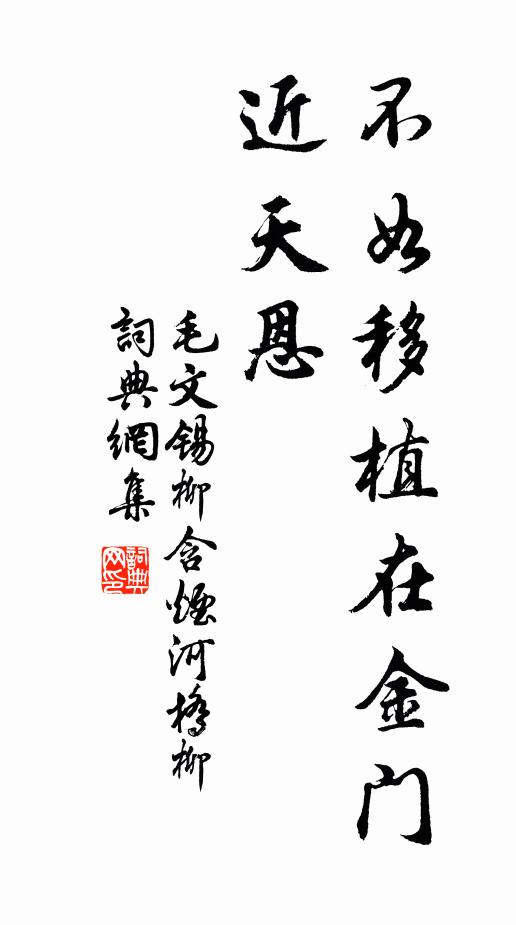 不如移植在金门
近天恩
毛文锡柳含煙河橋柳
詞典網集
詞典
网印